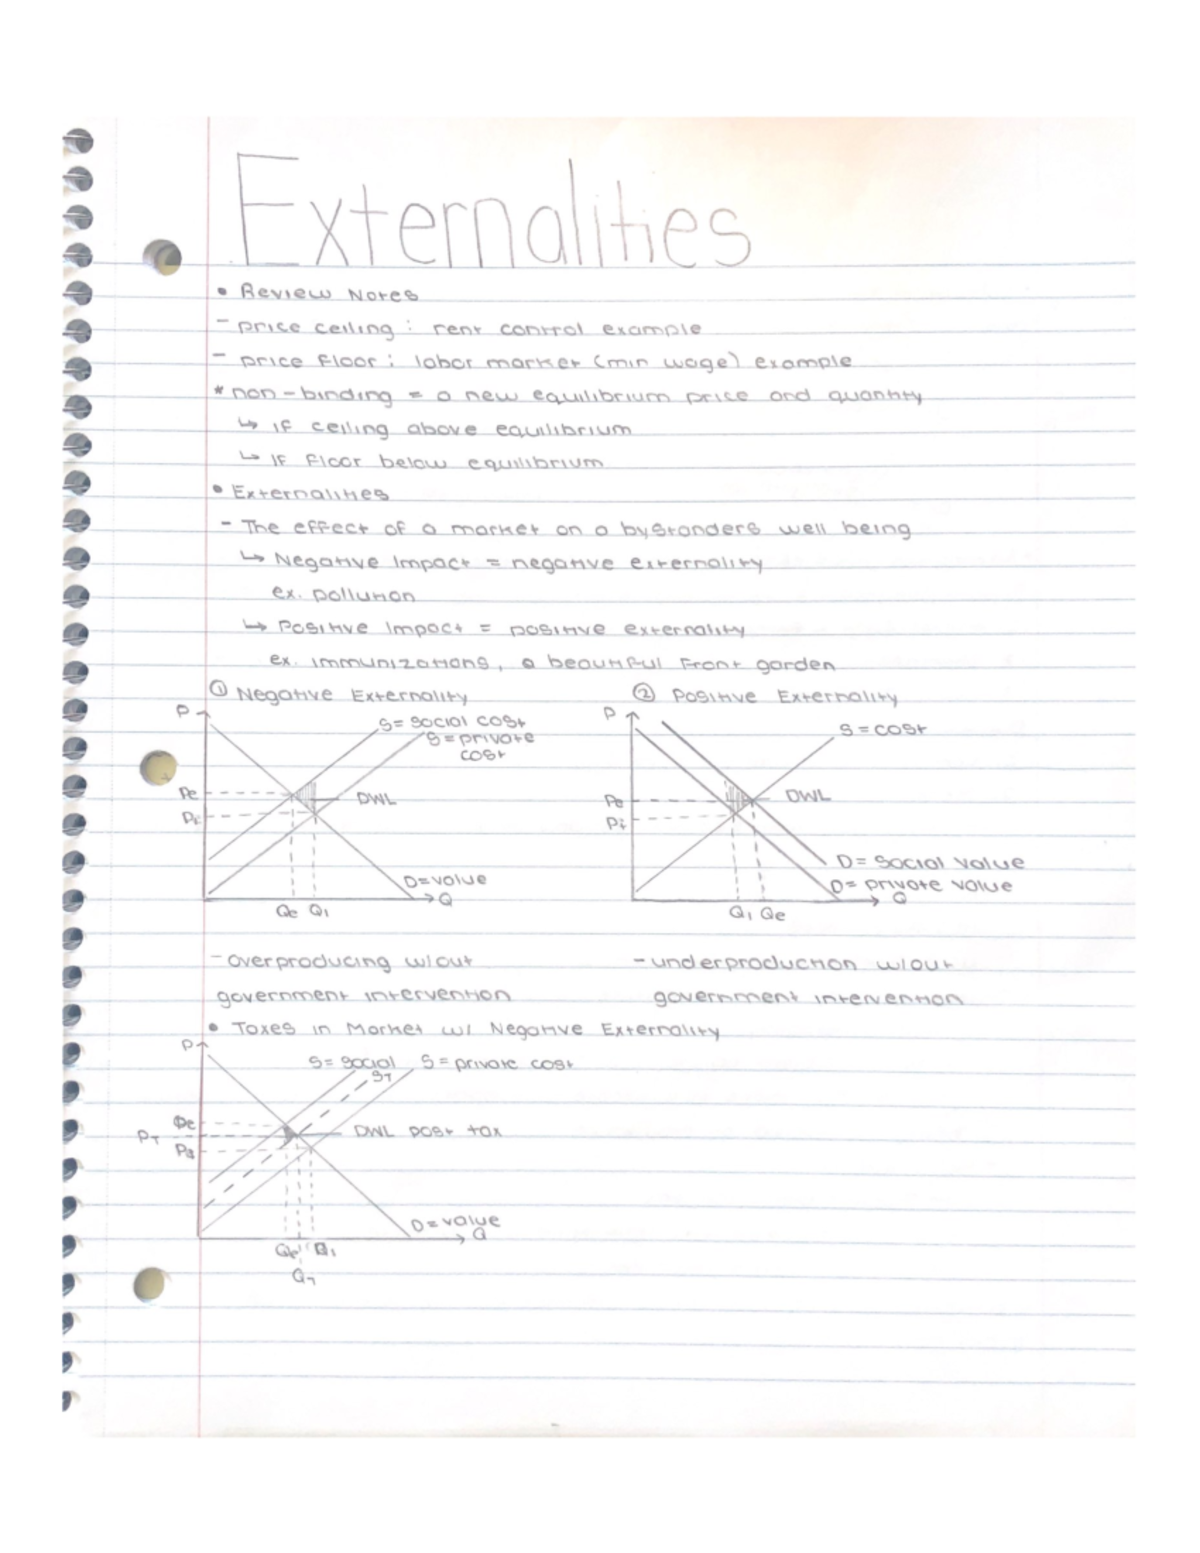 Externalities
• Review Notes
- price ceiling: rent control example
- price floor: labor market (min wage) example
* non-binding = a new equilibrium price and quantity
↳ if ceiling above equilibrium
↳ if floor below equilibrium
• Externalities
- The effect of a market on a bystanders well being
↳ Negative Impact = negative externality
ex. pollution
↳ Positive Impact = positive externality
ex. immunizations, a beautiful front garden
① Negative Externality
P
S= social cost
S= private
cost
Pe
DWL
D=value
Q
Qe Q1
② Positive Externality
P
S=cost
Pe
DWL
P1
D= social value
D= private value
Q
Q1 Qe
- overproducing w/out
government intervention
- underproduction w/out
government intervention
• Taxes in Market w/ Negative Externality
P
S= social S= private cost
ST
Pe
PT
DWL post tax
D=value
Q
Qe Q1
QT